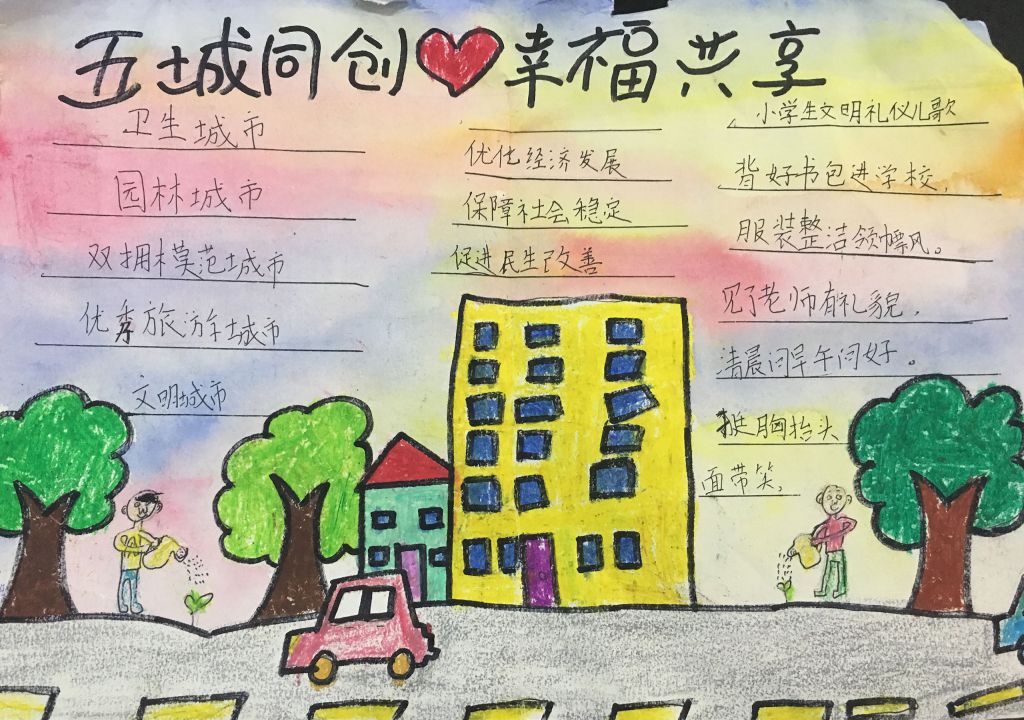 五城同创 幸福共享
卫生城市
园林城市
双拥模范城市
优秀旅游城市
文明城市
优化经济发展
保障社会稳定
促进民生改善
小学生文明礼仪儿歌
背好书包进学校,
服装整洁领飘风。
见了老师有礼貌,
清晨问早午问好。
挺胸抬头
面带笑,